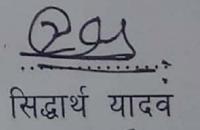 सिद्धार्थ यादव